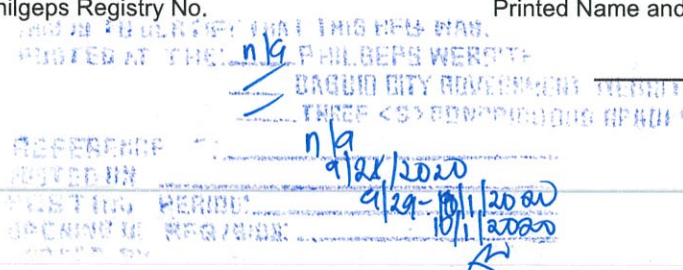 hilgeps Registry No. Printed Name and
THIS IS TO CERTIFY THAT THIS RFQ WAS
POSTED AT THE: n/a PHILGEPS WEBSITE
BAGUIO CITY GOVERNMENT WEBSITE
THREE <3> CONSPICUOUS
REFERENCE n/a
POSTED ON 9/28/2020
POSTING PERIOD: 9/29-10/1/2020
OPENING OF RFQ/ 10/1/2020